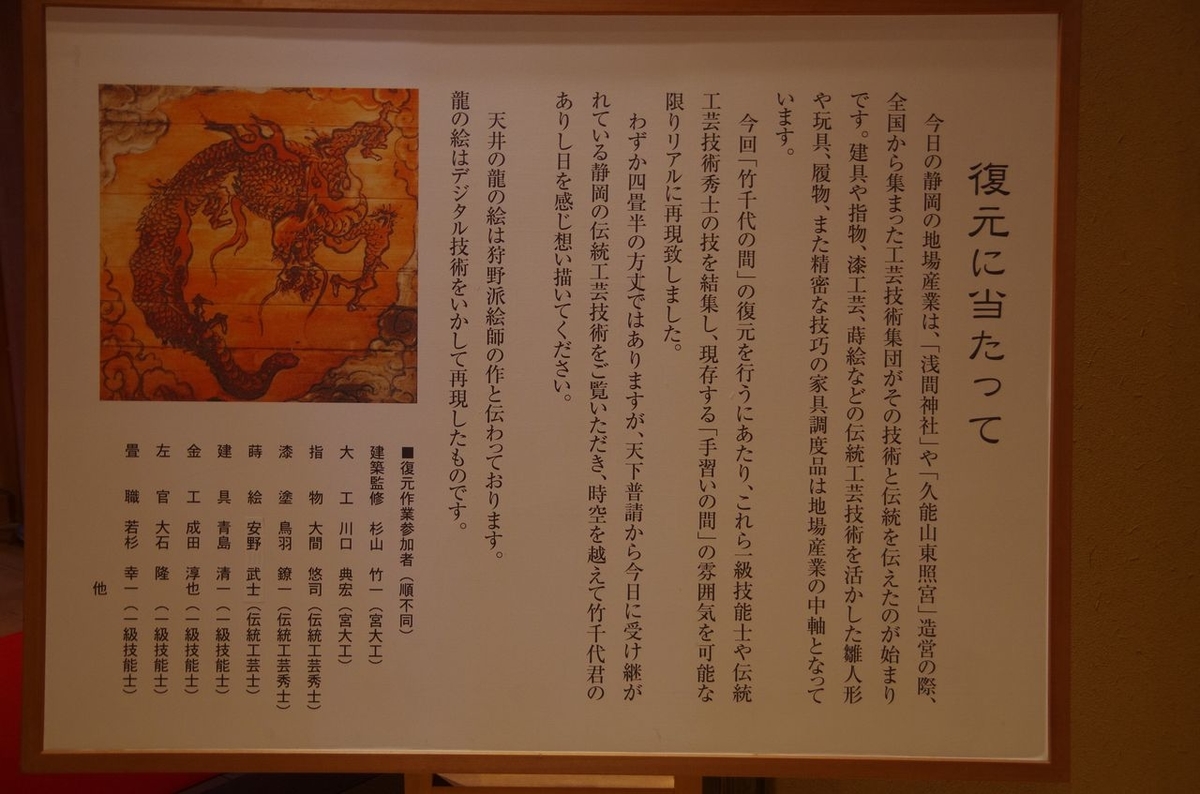 復元に当たって
今日の静岡の地場産業は、「浅間神社」や「久能山東照宮」造営の際、
全国から集まった工芸技術集団がその技術と伝統を伝えたのが始まり
です。建具や指物、漆工芸、蒔絵などの伝統工芸技術を活かした雛人形
や玩具、履物、また精密な技巧の家具調度品は地場産業の中軸となって
います。
今回「竹千代の間」の復元を行うにあたり、これら一級技能士や伝統
工芸技術秀士の技を結集し、現存する「手習いの間」の雰囲気を可能な
限りリアルに再現致しました。
わずか四畳半の方丈ではありますが、天下普請から今日に受け継が
れている静岡の伝統工芸技術をご覧いただき、時空を越えて竹千代君の
ありし日を感じ想い描いてください。
天井の龍の絵は狩野派絵師の作と伝わっております。
龍の絵はデジタル技術をいかして再現したものです。
■復元作業参加者(順不同)
建築監修 杉山 竹一(宮大工)
大工 川口 典宏(宮大工)
指物 大間 悠司(伝統工芸秀士)
漆塗 鳥羽 鐐一(伝統工芸秀士)
蒔絵 安野 武士(伝統工芸士)
建具 青島 清一(一級技能士)
金工 成田 淳也(一級技能士)
左官 大石 隆(一級技能士)
畳職 若杉 幸一(一級技能士)
他